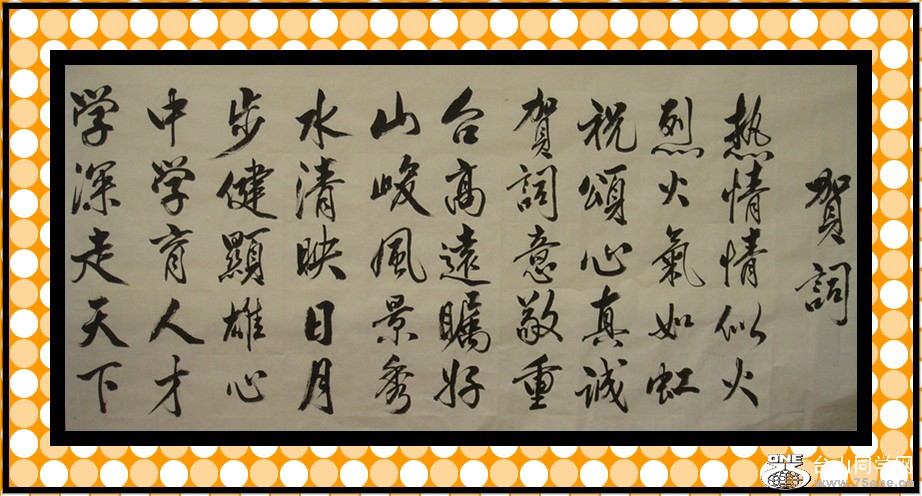 賀詞
热情情似火
烈火氣如虹
祝頌心真诚
賀詞意敬重
台高遠瞩好
山峻風景秀
水清映日月
步健顯雄心
中学育人才
学深走天下
ONE
台山同学网
www.75one.cn